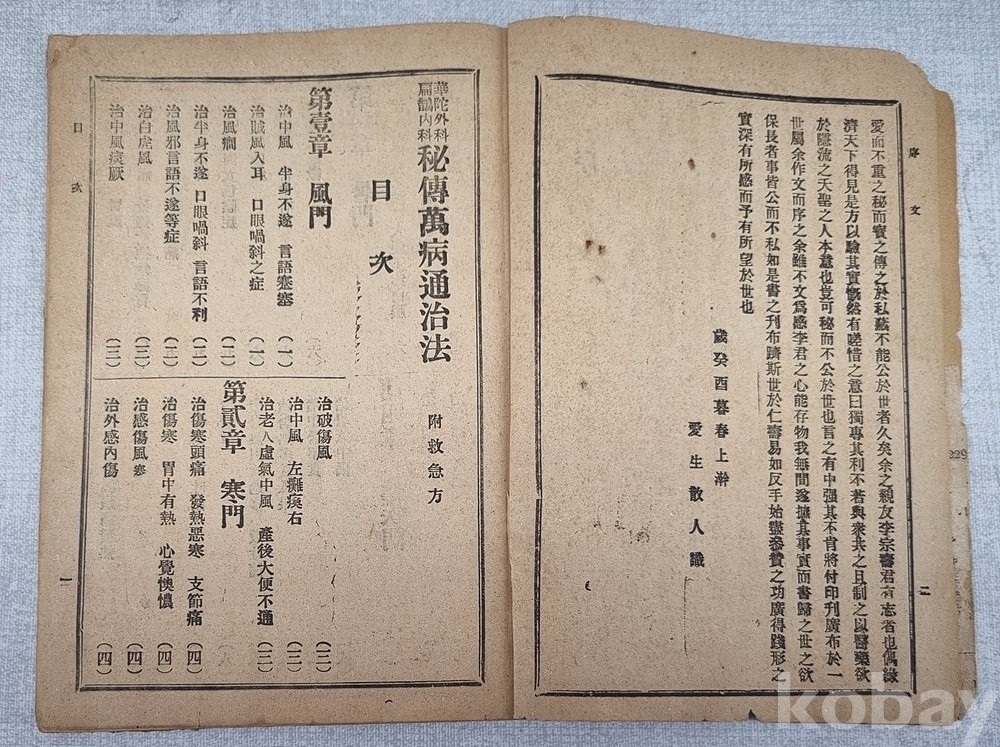 序文
愛而不重之秘而實之傳之於私藏不能公於世者久矣余之親友李宗壽君有志省也偶談
濟天下得見是方以驗其實慨然有嗟惜之意曰獨專其利不若與衆共之且制之以醫藥欲
於隱流之天聖之人本意也豈可秘而不公於世也言之有中强其不肯將付印刊廣布於一
世屬余作文而序之余雖不文爲感李君之心能存物我無間遂據其事實而書歸之世之欲
保長者事皆公而不私如是書之刊布躋斯世於仁壽易如反手始盡參贊之功廣得踐形之
實深有所感而予有所望於世也
歲癸酉暮春上澣
愛生散人識
二
華陀外科
扁鵲內科
秘傳萬病通治法
附救急方
目次
第壹章 風門
治中風 半身不遂 言語蹇澁 (一)
治賊風入耳 口眼喎斜之症 (一)
治風癎 (二)
治半身不遂 口眼喎斜 言語不利 (二)
治風邪言語不遂等症 (二)
治白虎風 (三)
治中風痰厥 (三)
治破傷風 (三)
治中風 左癱瘓右 (三)
治老人虛氣中風 產後大便不通 (三)
第貳章 寒門
治傷寒頭痛 發熱惡寒 支節痛 (四)
治傷寒 胃中有熱 心覺懊憹 (四)
治感傷風寒 (四)
治外感內傷 (四)
目次
一
kobay